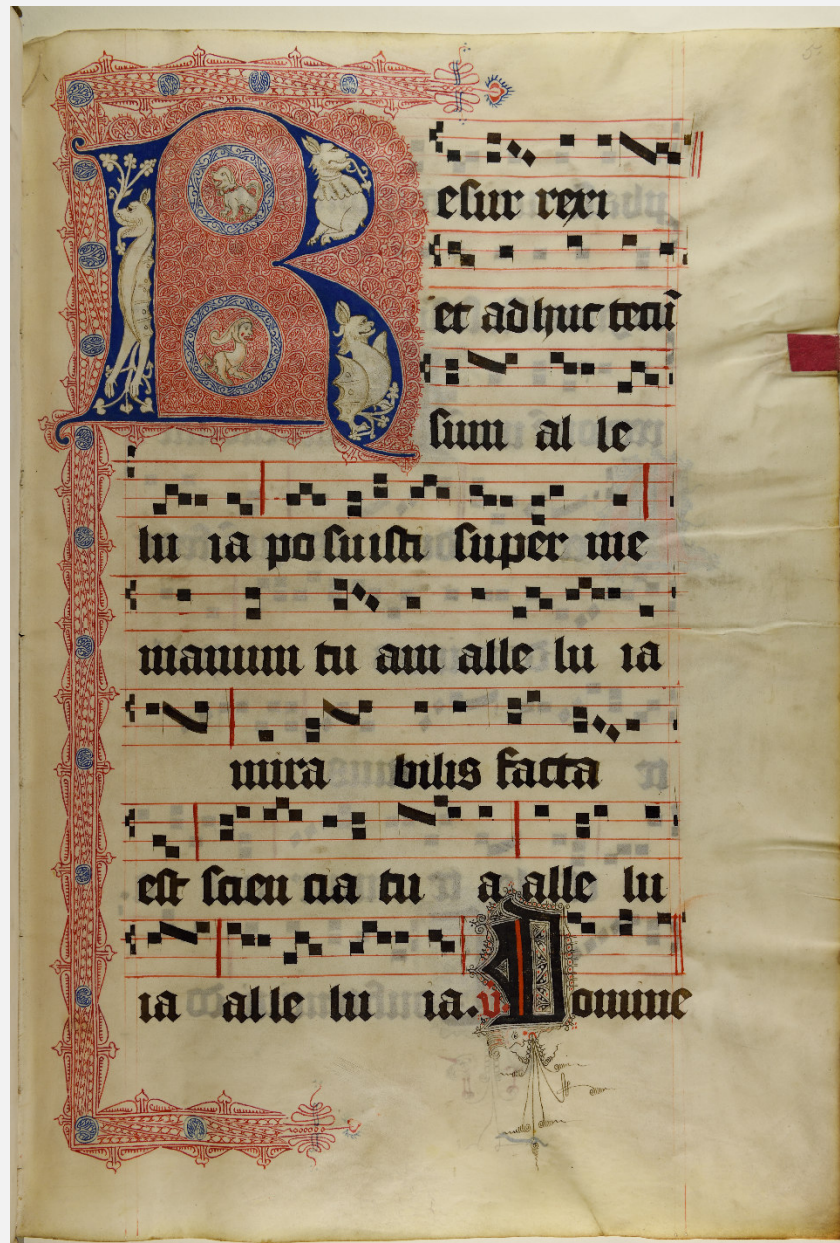 Resur rexi
et adhuc tecū
sum al le
lu ia po suisti super me
manum tu am alle lu ia
mira bilis facta
est scien cia tu a alle lu
ia al le lu ia. v Domine